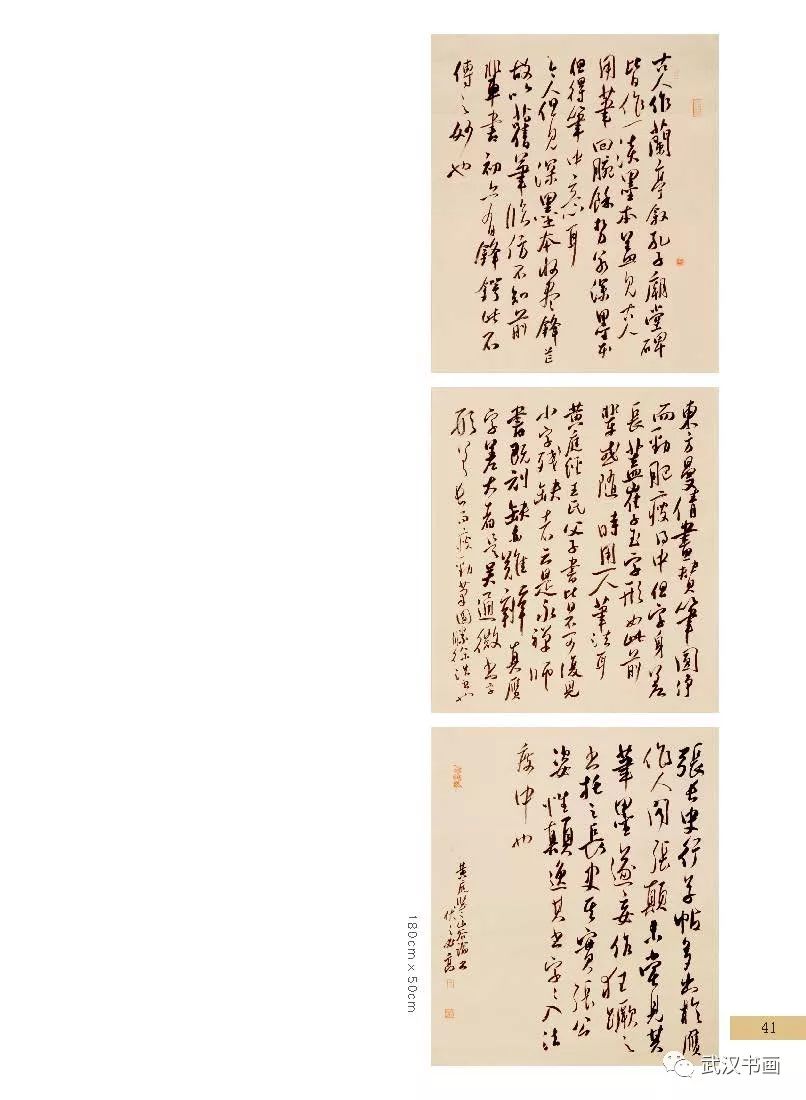 古人作蘭亭叙孔子廟堂碑
皆作一淡墨本蓋見古人
用筆回腕餘勢若深墨本
但得筆中意耳
今人但見深墨本收盡鋒芒
故以舊筆臨仿不知前
輩書初亦有鋒鍔此不
傳之妙也
東方曼倩畫贊筆圓淨
而勁肥瘦得中但字身差
長蓋崔子玉字形如此前
輩或隨時用一人筆法耳
黄庭經王氏父子書皆不可復見
小字殘缺者云是永禪師
書既刻缺亦難辨真贋
字差大者是吳通微書字
形差長而瘦勁筆圓勝徐浩書也
張長史行草帖多出於贋
作人聞張顛未嘗見其
筆墨遂妄作狂蹶之
書托之長史其實張公
姿性顛逸其書字字入法
度中也
黄庭堅山谷論書
180cm×50cm
41
武汉书画